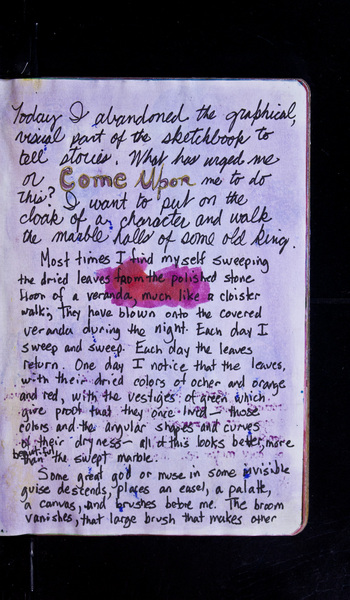 Today I abandoned the graphical,
visual part of the sketchbook to
tell stories. What has urged me
or Come Upon me to do
this? I want to put on the
cloak of a character and walk
the marble halls of some old king.
Most times I find myself sweeping
the dried leaves from the polished stone
floor of a veranda, much like a cloister
walk; They have blown onto the covered
veranda during the night. Each day I
sweep and sweep. Each day the leaves
return. One day I notice that the leaves,
with their dried colors of ocher and orange
and red, with the vestiges of green which
give proof that they once lived — those
colors and the angular shapes and curves
of their dryness — all of this looks better, more
beautiful than the swept marble.
Some great god or muse in some invisible
guise descends, places an easel, a palatt,
a canvas, and brushes before me. The broom
vanishes, that large brush that makes other